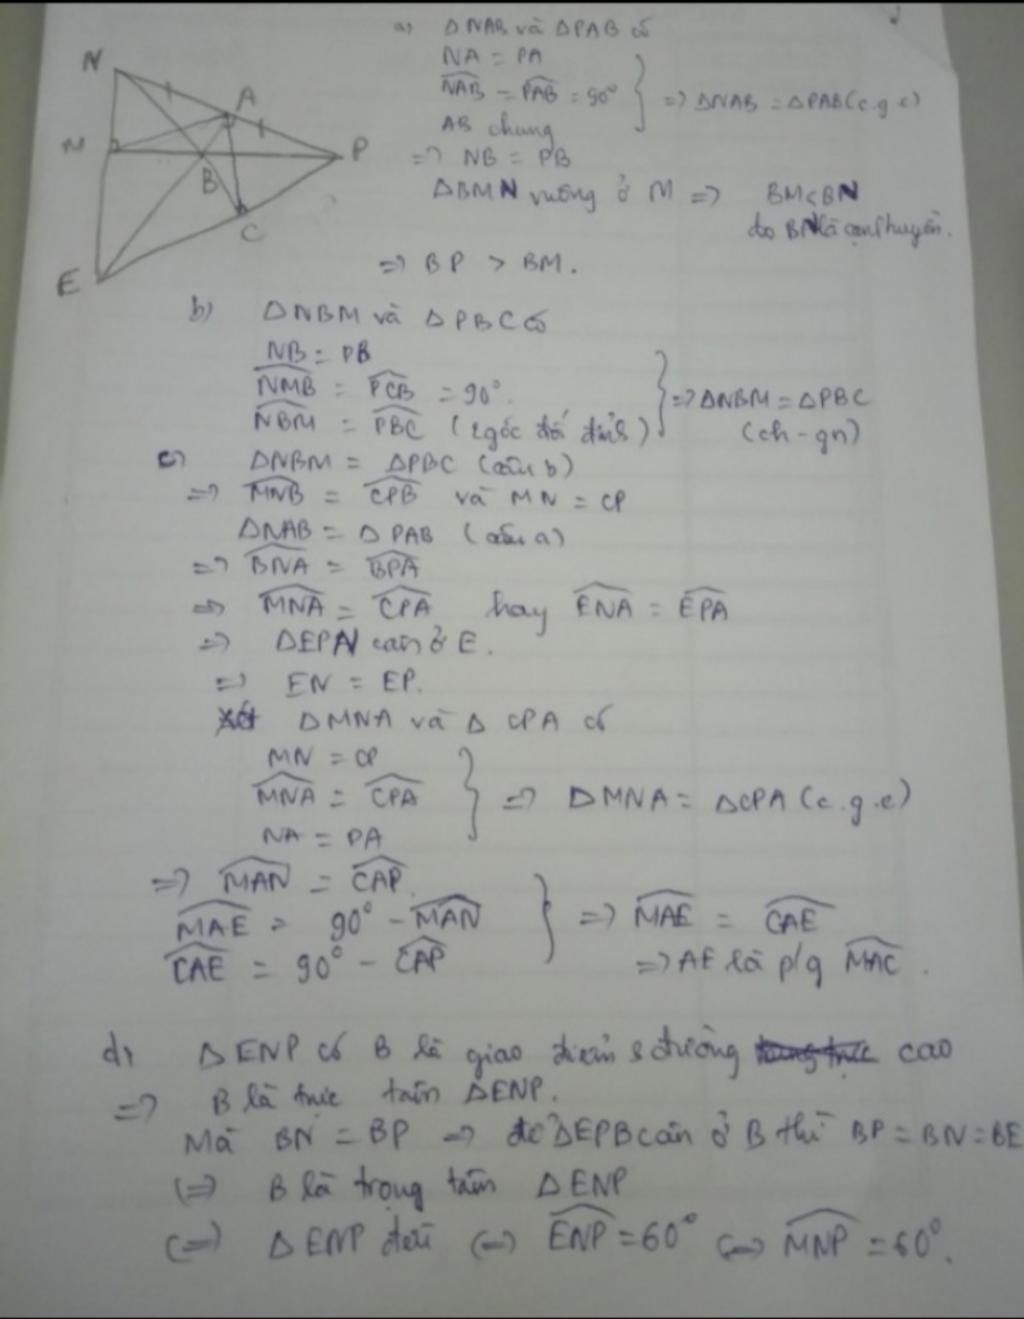 N
A
M
P
B
C
E
a) ΔNAB và ΔPAB có
NA = PA
NAB = PAB = 90°
AB chung
=> ΔNAB = ΔPAB (c.g.c)
=> NB = PB
ΔBMN vuông ở M => BM < BN
do BN là cạnh huyền.
=> BP > BM.
b) ΔNBM và ΔPBC có
NB = PB
NMB = PCB = 90°
NBM = PBC (2 góc đối đỉnh)
=> ΔNBM = ΔPBC
(ch - gn)
c) ΔNBM = ΔPBC (câu b)
=> MNB = CPB và MN = CP
ΔNAB = ΔPAB (câu a)
=> BNA = BPA
=> MNA = CPA hay ENA = EPA
=> ΔEPN cân ở E.
=> EN = EP.
Xét ΔMNA và ΔCPA có
MN = CP
MNA = CPA
NA = PA
=> ΔMNA = ΔCPA (c.g.c)
=> MAN = CAP
MAE = 90° - MAN
CAE = 90° - CAP
=> MAE = CAE
=> AE là p/g MAC.
d) ΔENP có B là giao điểm 3 đường cao
=> B là trực tâm ΔENP.
Mà BN = BP => để ΔEPB cân ở B thì BP = BN = BE
(=> B là trọng tâm ΔENP
(=> ΔENP đều (=> ENP = 60° (=> MNP = 60°.